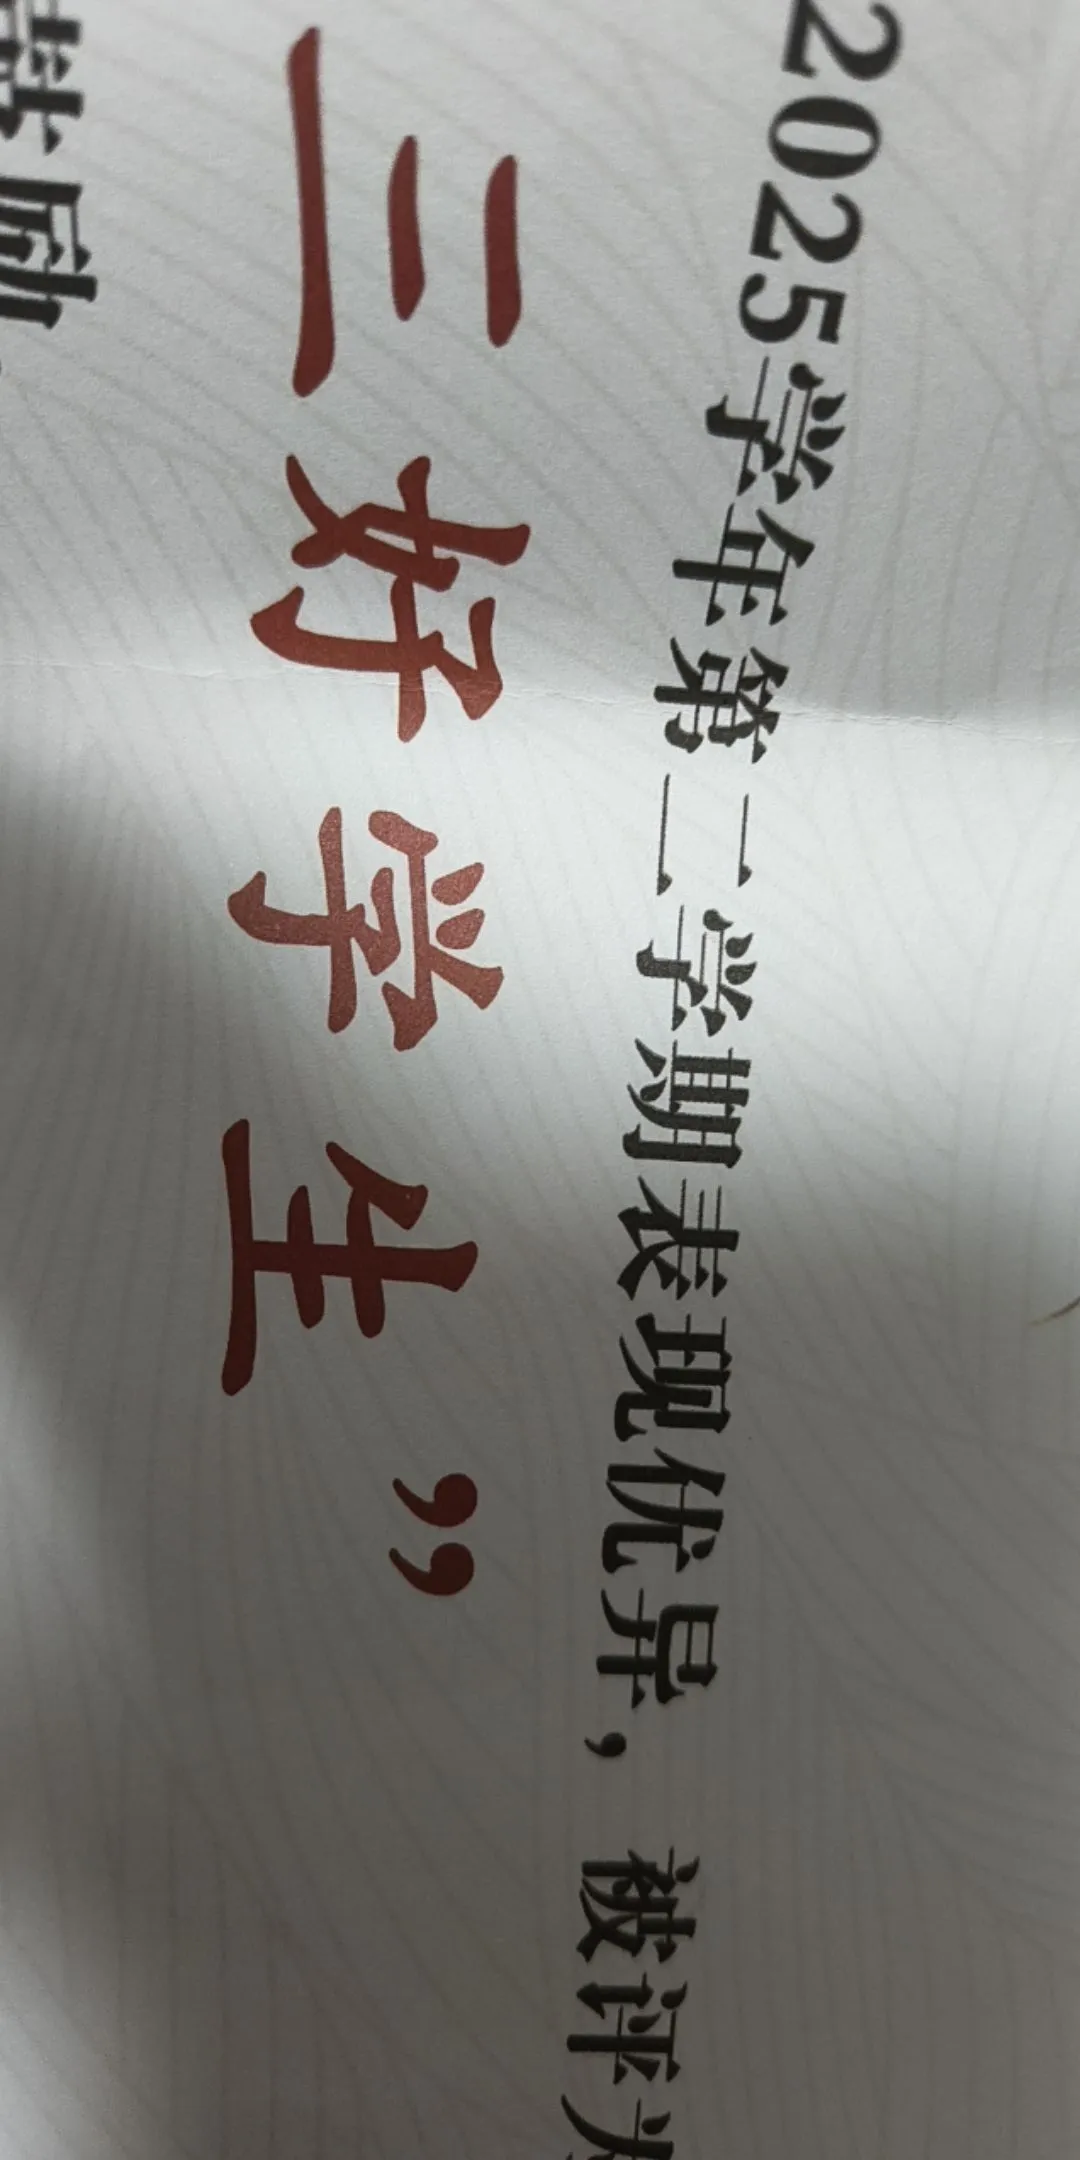 2025学年第二学期表现优异，被评为
三好学生”
鼓励